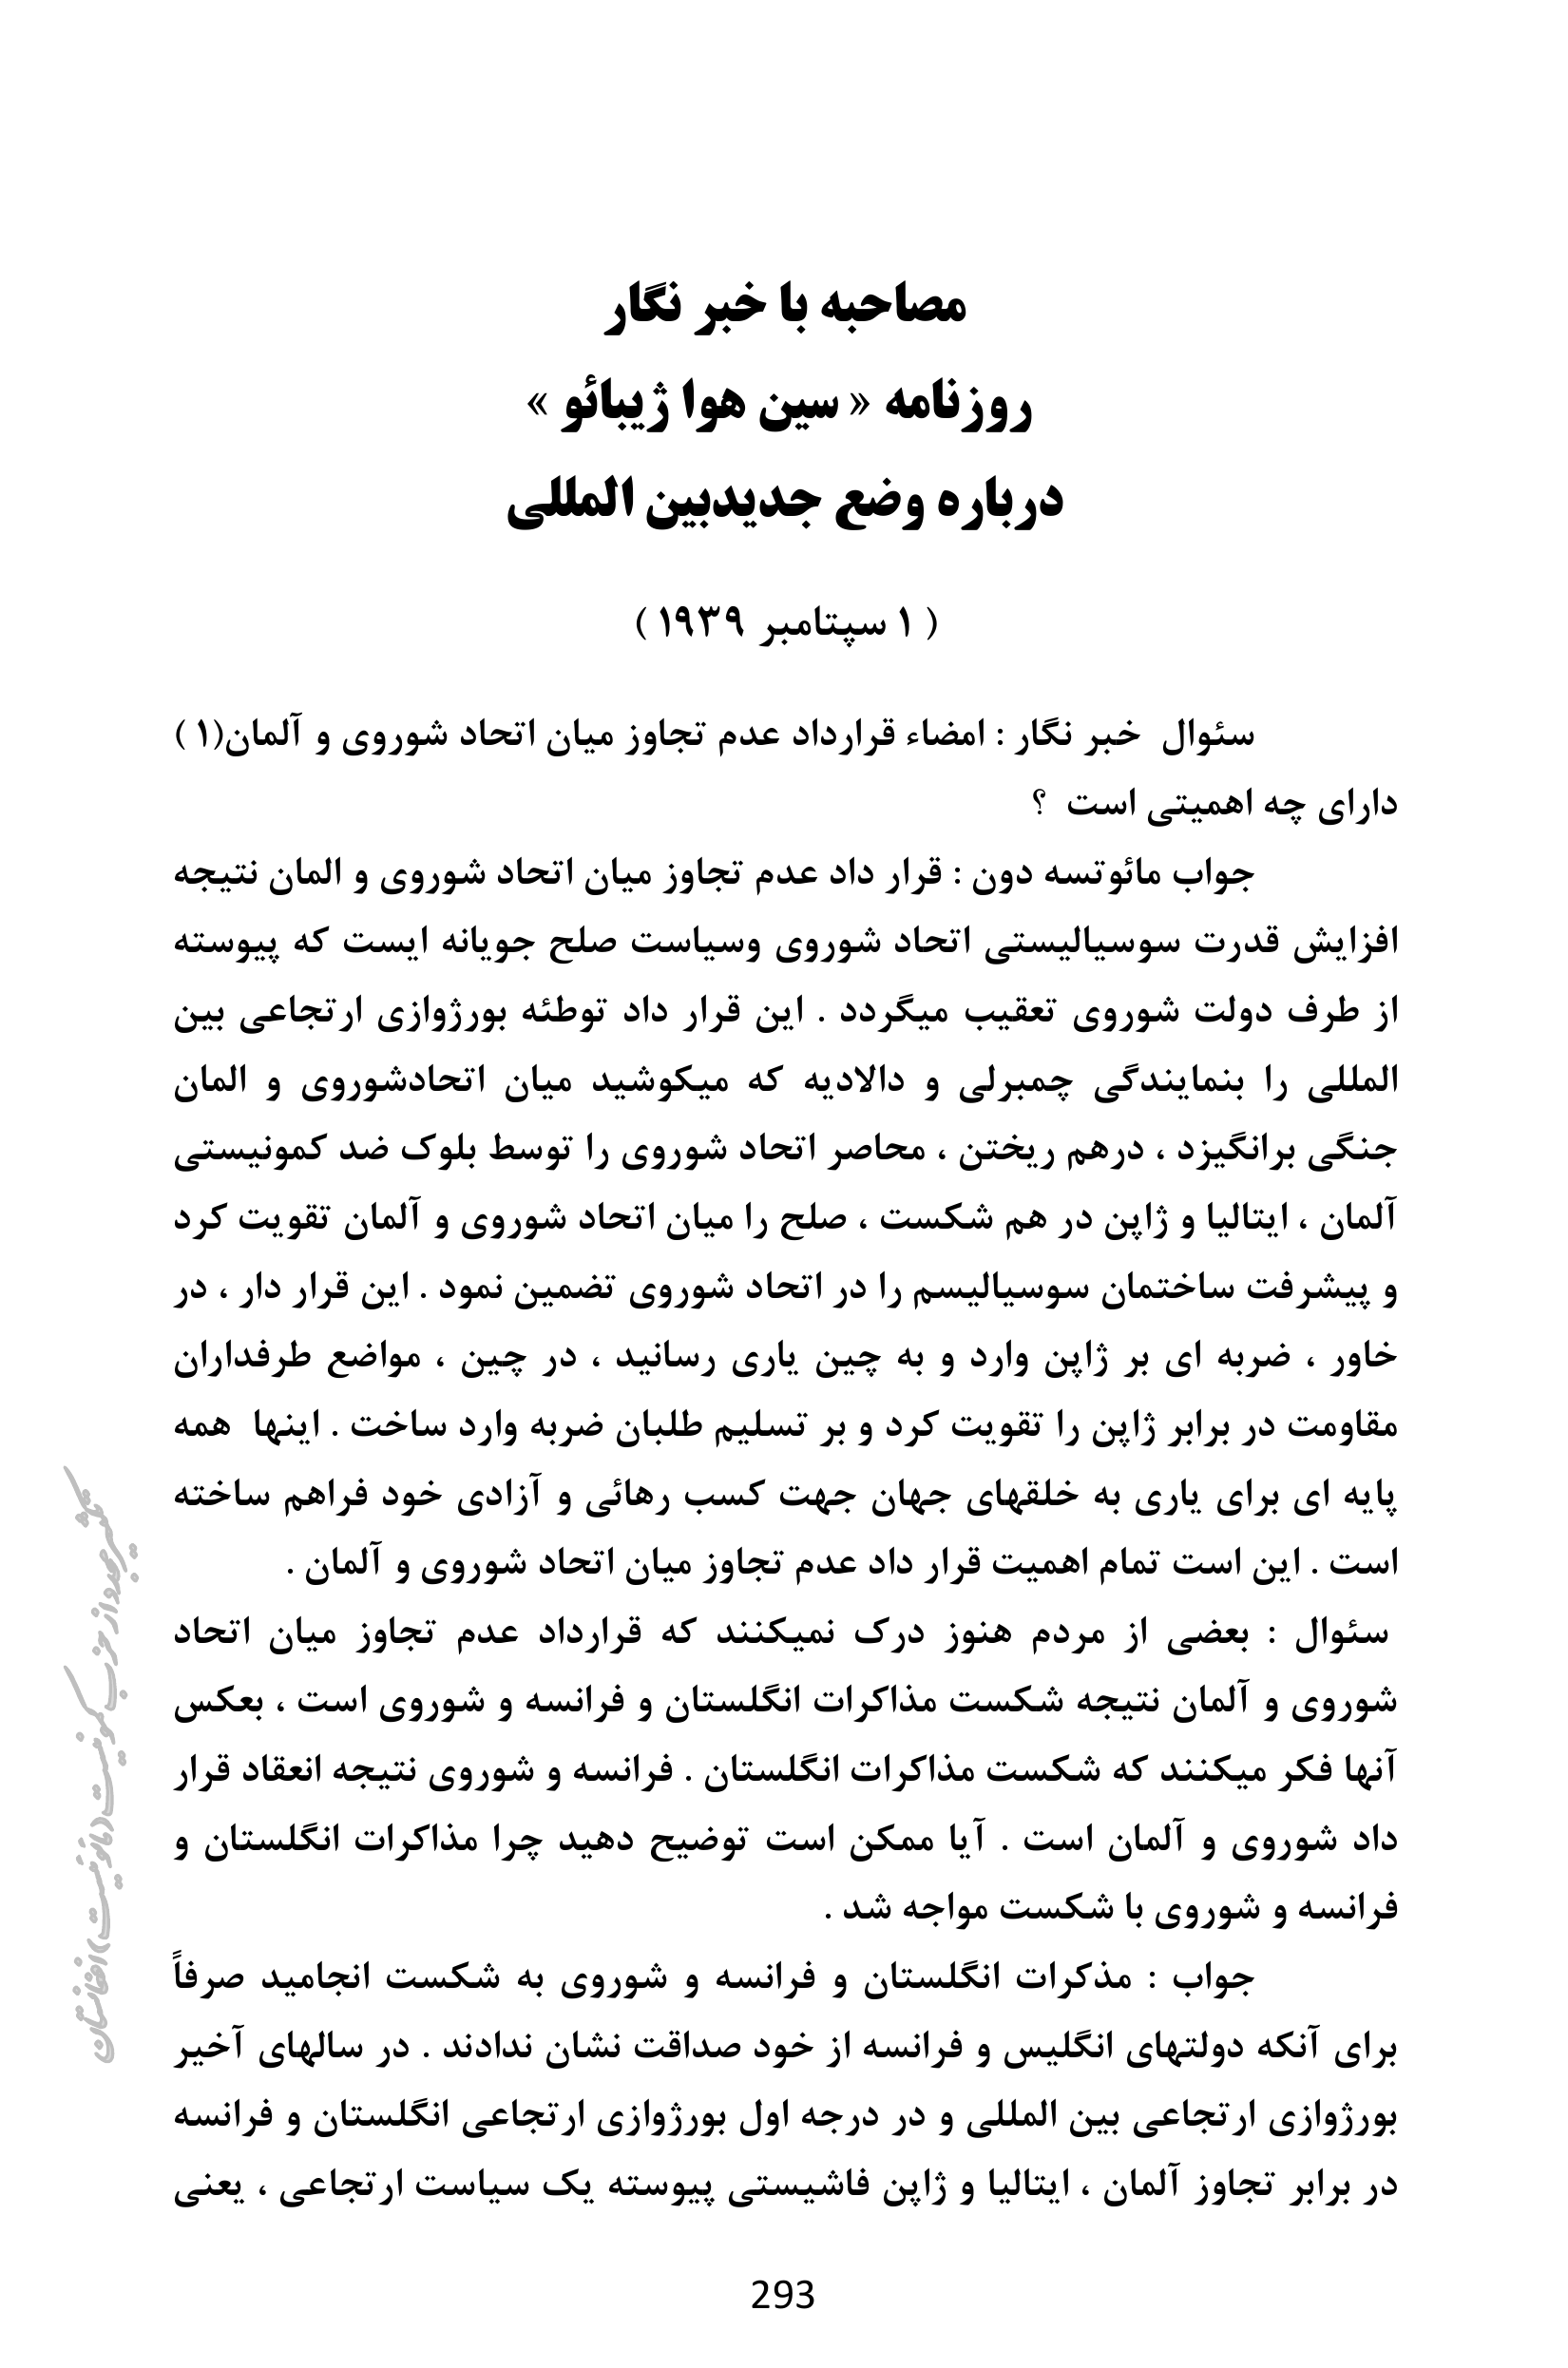 مصاحبه با خبر نگار
روزنامه « سین هوا ژیبائو »
درباره وضع جدیدبین المللی
( ۱ سپتامبر ۱۹۳۹ )
سئوال خبر نگار : امضاء قرارداد عدم تجاوز میان اتحاد شوروی و آلمان(۱ )
دارای چه اهمیتی است ؟
جواب مائوتسه دون : قرار داد عدم تجاوز میان اتحاد شوروی و المان نتیجه
افزایش قدرت سوسیالیستی اتحاد شوروی وسیاست صلح جویانه ایست که پیوسته
از طرف دولت شوروی تعقیب میگردد . این قرار داد توطئه بورژوازی ارتجاعی بین
المللی را بنمایندگی چمبرلی و دالادیه که میکوشید میان اتحادشوروی و المان
جنگی برانگیزد ، درهم ریختن ، محاصر اتحاد شوروی را توسط بلوک ضد کمونیستی
آلمان ، ایتالیا و ژاپن در هم شکست ، صلح را میان اتحاد شوروی و آلمان تقویت کرد
و پیشرفت ساختمان سوسیالیسم را در اتحاد شوروی تضمین نمود . این قرار دار ، در
خاور ، ضربه ای بر ژاپن وارد و به چین یاری رسانید ، در چین ، مواضع طرفداران
مقاومت در برابر ژاپن را تقویت کرد و بر تسلیم طلبان ضربه وارد ساخت . اینها همه
پایه ای برای یاری به خلقهای جهان جهت کسب رهائی و آزادی خود فراهم ساخته
است . این است تمام اهمیت قرار داد عدم تجاوز میان اتحاد شوروی و آلمان .
سئوال : بعضی از مردم هنوز درک نمیکنند که قرارداد عدم تجاوز میان اتحاد
شوروی و آلمان نتیجه شکست مذاکرات انگلستان و فرانسه و شوروی است ، بعکس
آنها فکر میکنند که شکست مذاکرات انگلستان . فرانسه و شوروی نتیجه انعقاد قرار
داد شوروی و آلمان است . آیا ممکن است توضیح دهید چرا مذاکرات انگلستان و
فرانسه و شوروی با شکست مواجه شد .
جواب : مذکرات انگلستان و فرانسه و شوروی به شکست انجامید صرفاً
برای آنکه دولتهای انگلیس و فرانسه از خود صداقت نشان ندادند . در سالهای آخیر
بورژوازی ارتجاعی بین المللی و در درجه اول بورژوازی ارتجاعی انگلستان و فرانسه
در برابر تجاوز آلمان ، ایتالیا و ژاپن فاشیستی پیوسته یک سیاست ارتجاعی ، یعنی
293